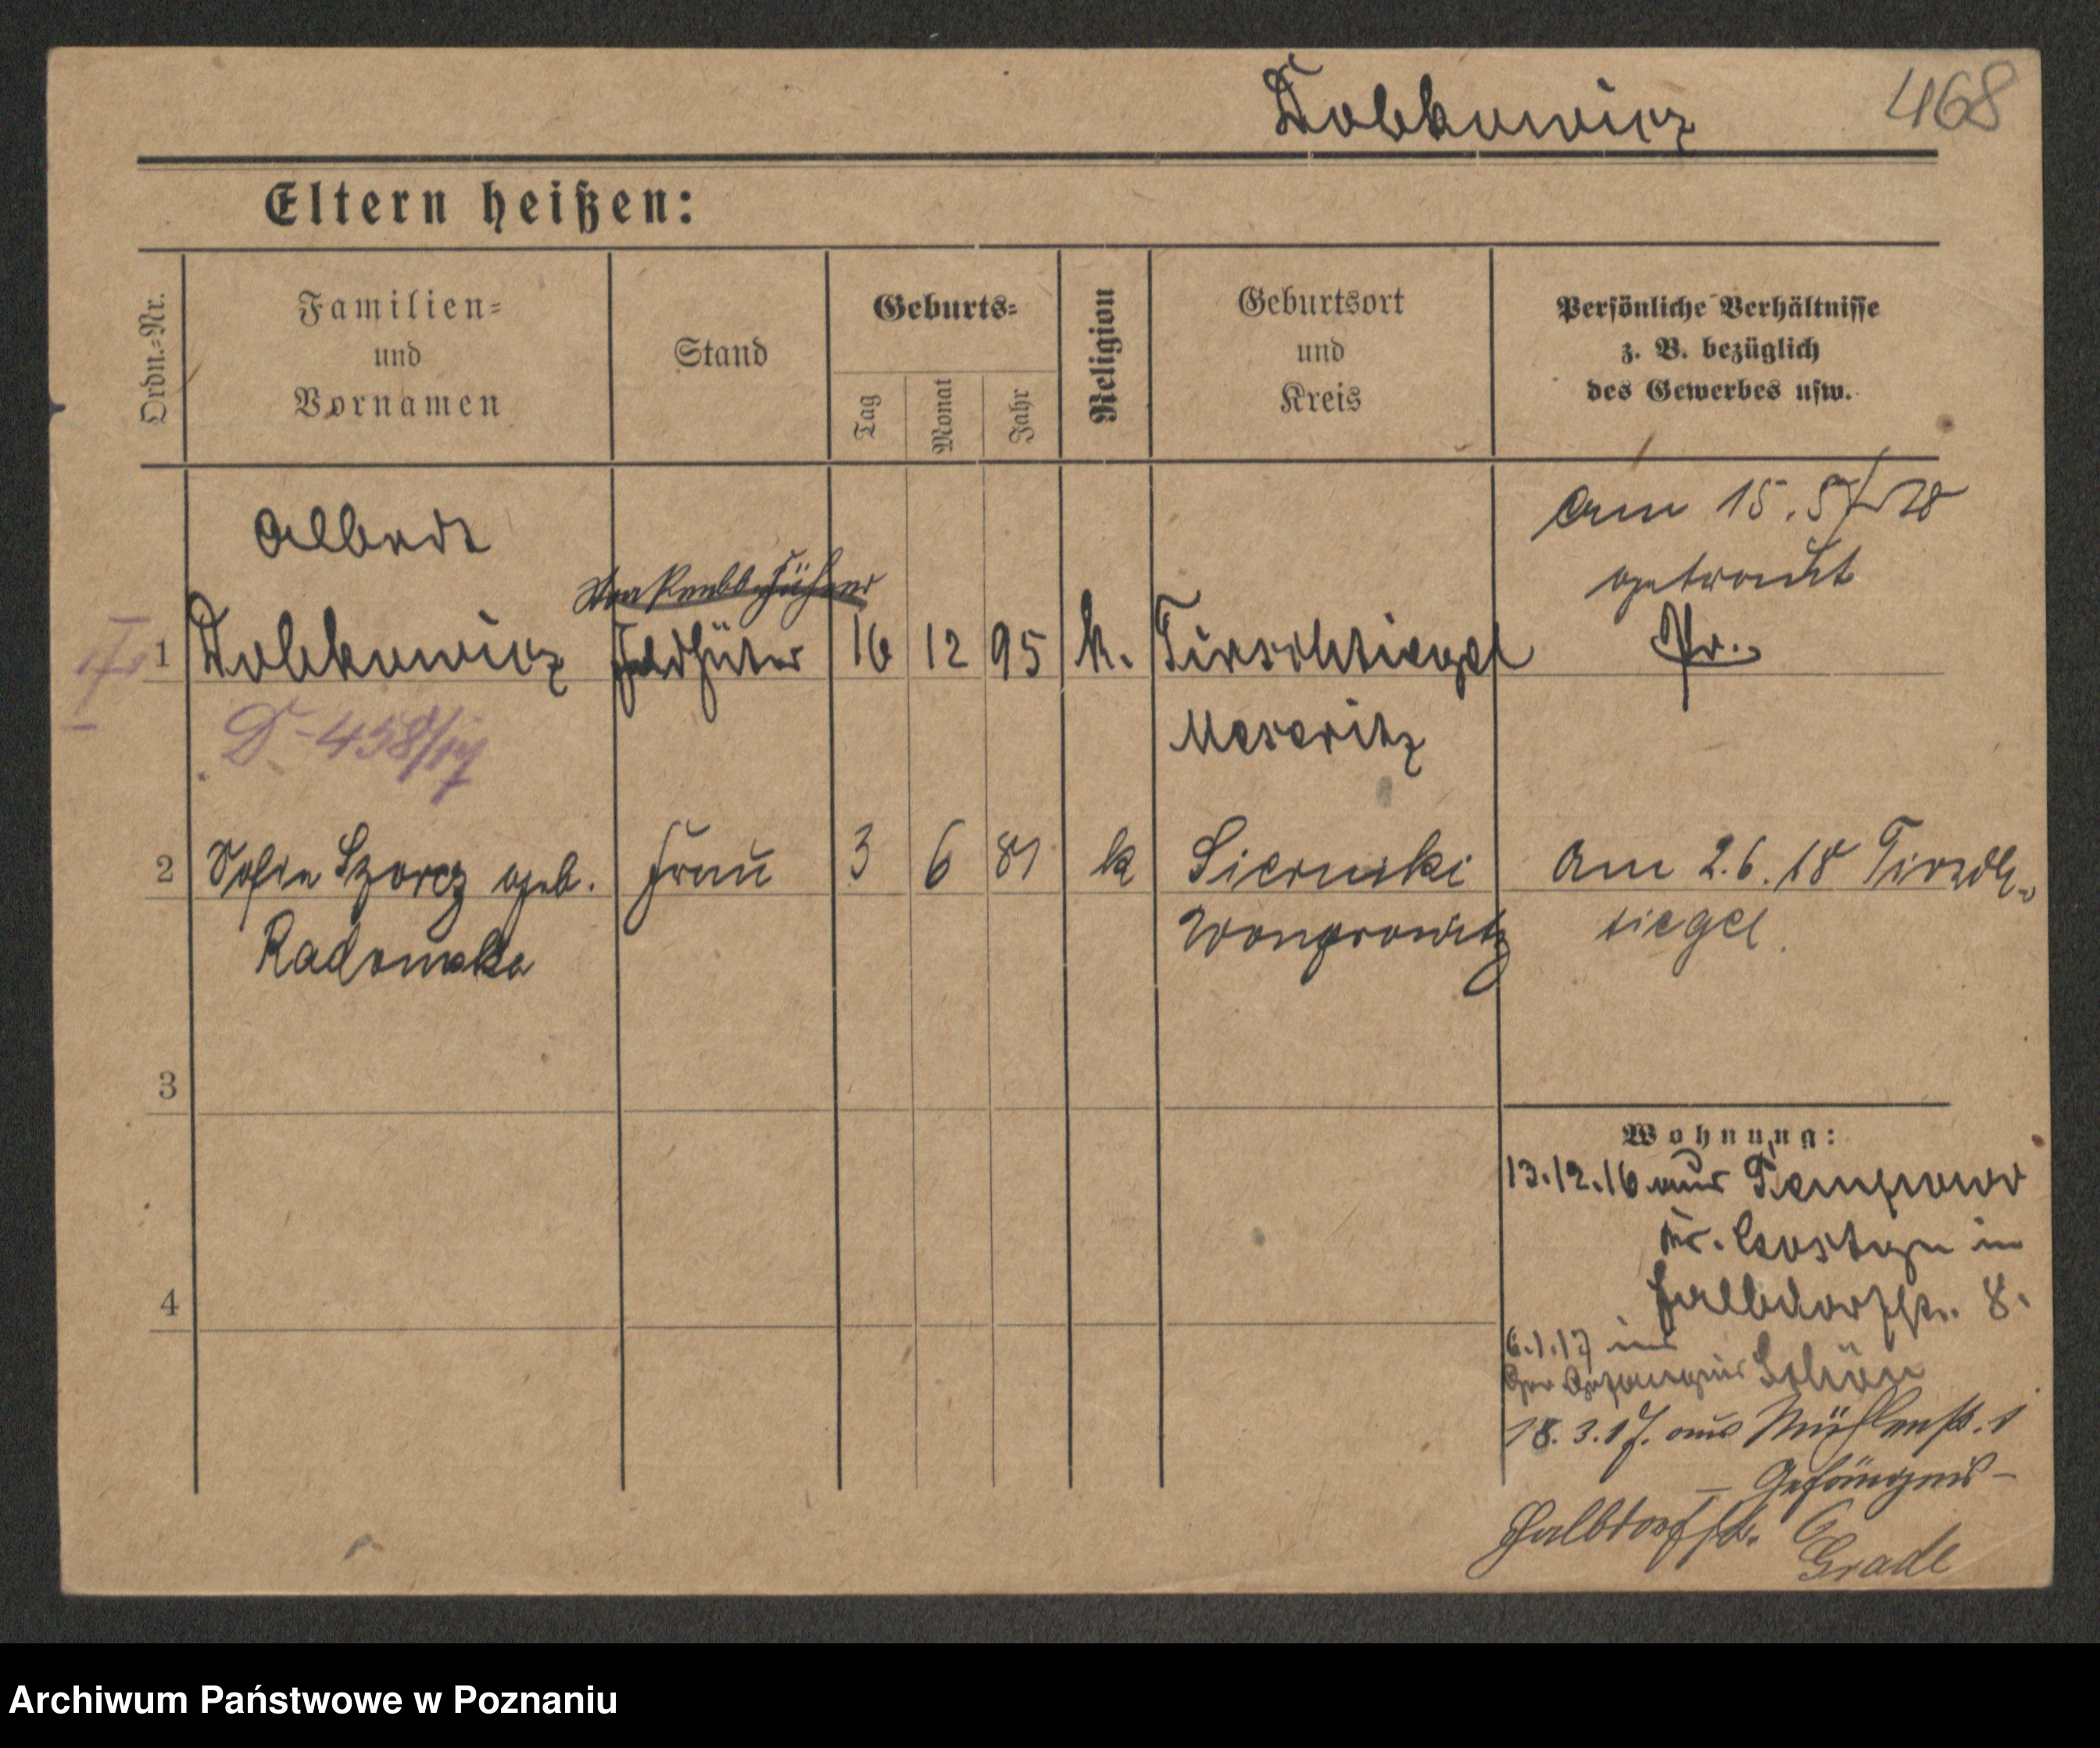 Dobkowicz 468
Eltern heißen:
Ordn.-Nr.
Familien-
und
Vornamen
Stand
Geburts-
Tag
Monat
Jahr
Religion
Geburtsort
und
Kreis
Persönliche Verhältnisse
z. B. bezüglich
des Gewerbes usw.
Albert
am 15. 5. 18
getraut
1 Dobkowicz Feldhüter 16 12 95 k. Tirschtiegel
Meseritz
D-458/17
2 Sofie Szorcz geb. Frau 3 6 81 k Sierniki am 2.6.18 Tirsch-
Radomska Wongrowitz tiegel.
3
Wohnung:
13.12.16 aus
Kr. Gostyn in
4 Halbdorfstr. 8.
6.1.17 ins
Gefängnis Schön
18.3.17. aus Mühlenstr. 1
- Gefängnis -
Halbdorfstr. 6
Grade
Archiwum Państwowe w Poznaniu